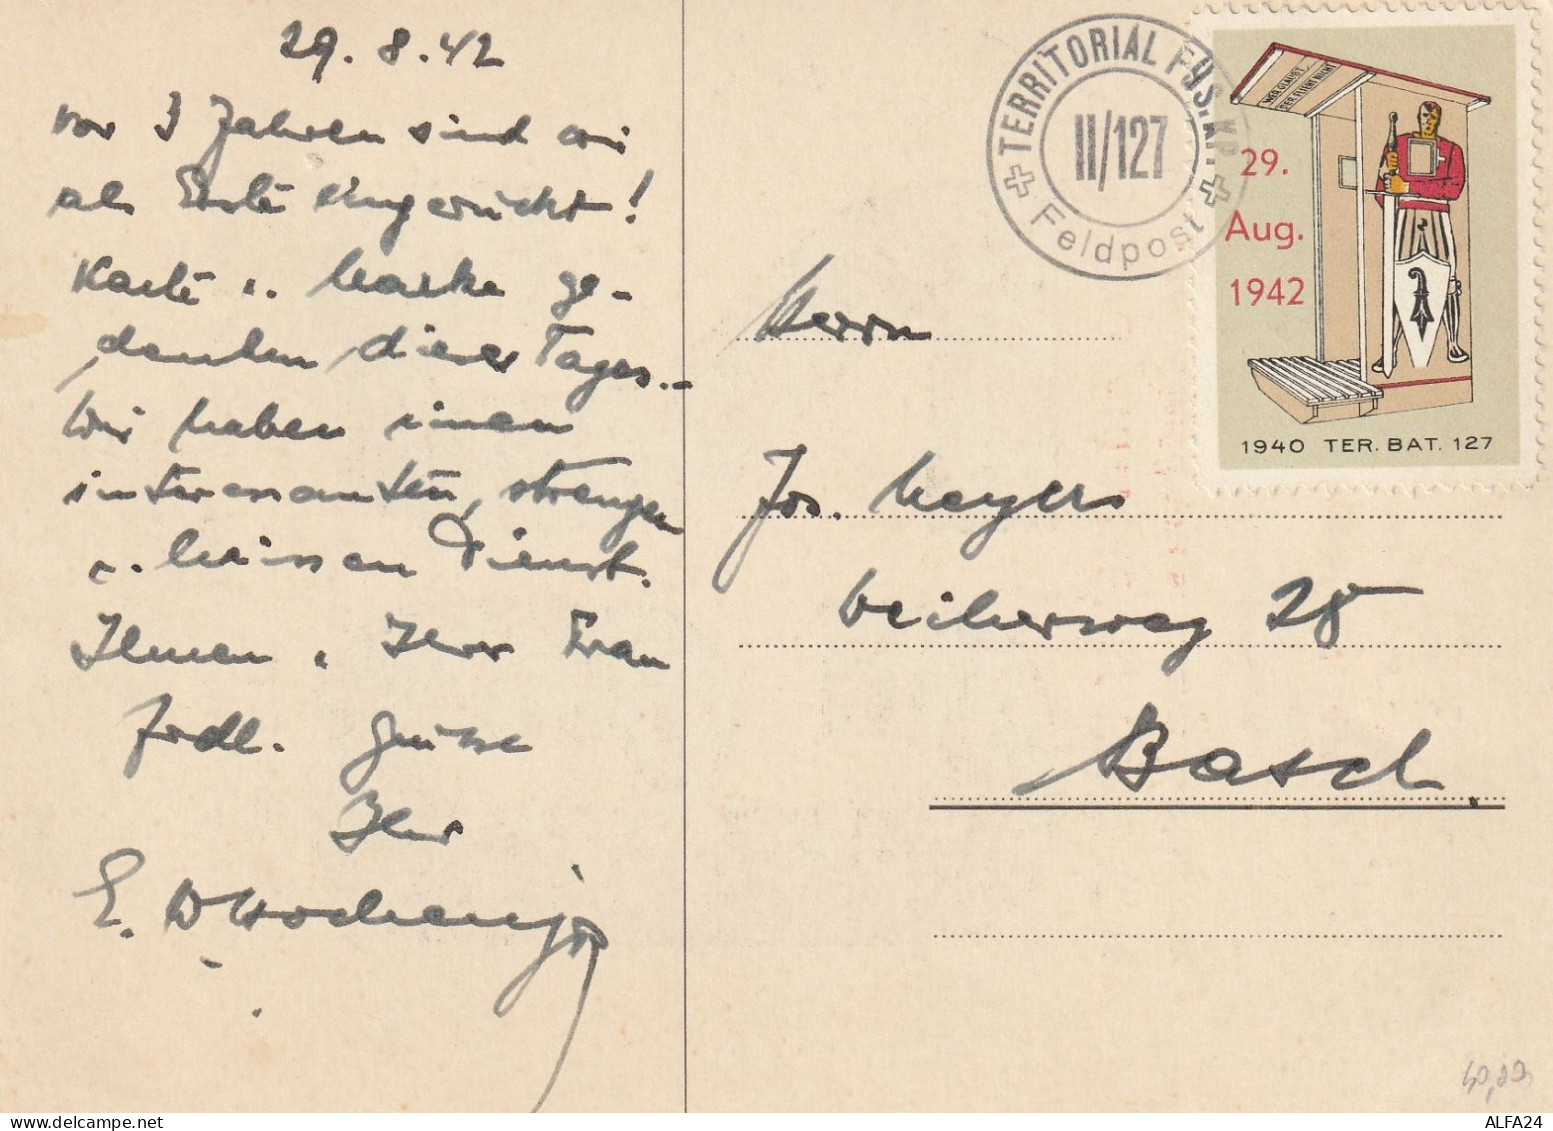 29. 8. 42
vor 3 Jahren sind wir
als Erste eingerückt!
Karte u. Marke ge-
denken dieses Tages.-
Wir haben einen
interessanten, strengen
u. heissen Dienst.
Ihnen u. Ihrer Frau
frdl. Grüsse
Ihr
E.
TERRITORIAL FÜS. KP.
II/127
Feldpost
WER GLAUBT
DER FLIEHT NICHT
29.
Aug.
1942
1940 TER. BAT. 127
Herrn
Jos. Meyer
Weiherweg 28
Basel
ALFA24